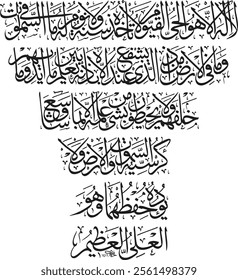 الله لا إله إلا هو الحي القيوم لا تأخذه سنة ولا نوم له ما في السموات
وما في الأرض من ذا الذي يشفع عنده إلا بإذنه يعلم ما بين أيديهم وما
خلفهم ولا يحيطون بشيء من علمه إلا بما شاء وسع
كرسيه السموات والأرض ولا
يؤده حفظهما وهو
العلي العظيم
shutterstock.com · 2561498379